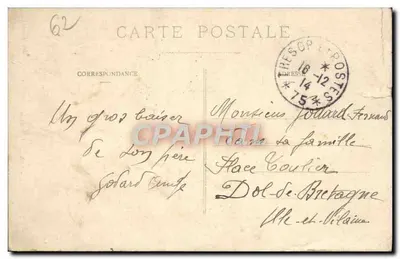 62
CARTE POSTALE
CORRESPONDANCE
TRESOR ET POSTES
16
12
14
* 75 *
Un gros baiser
de ton père
Godard
Monsieur Fernand
dans sa famille
Place
Dol-de-Bretagne
Ille-et-Vilaine